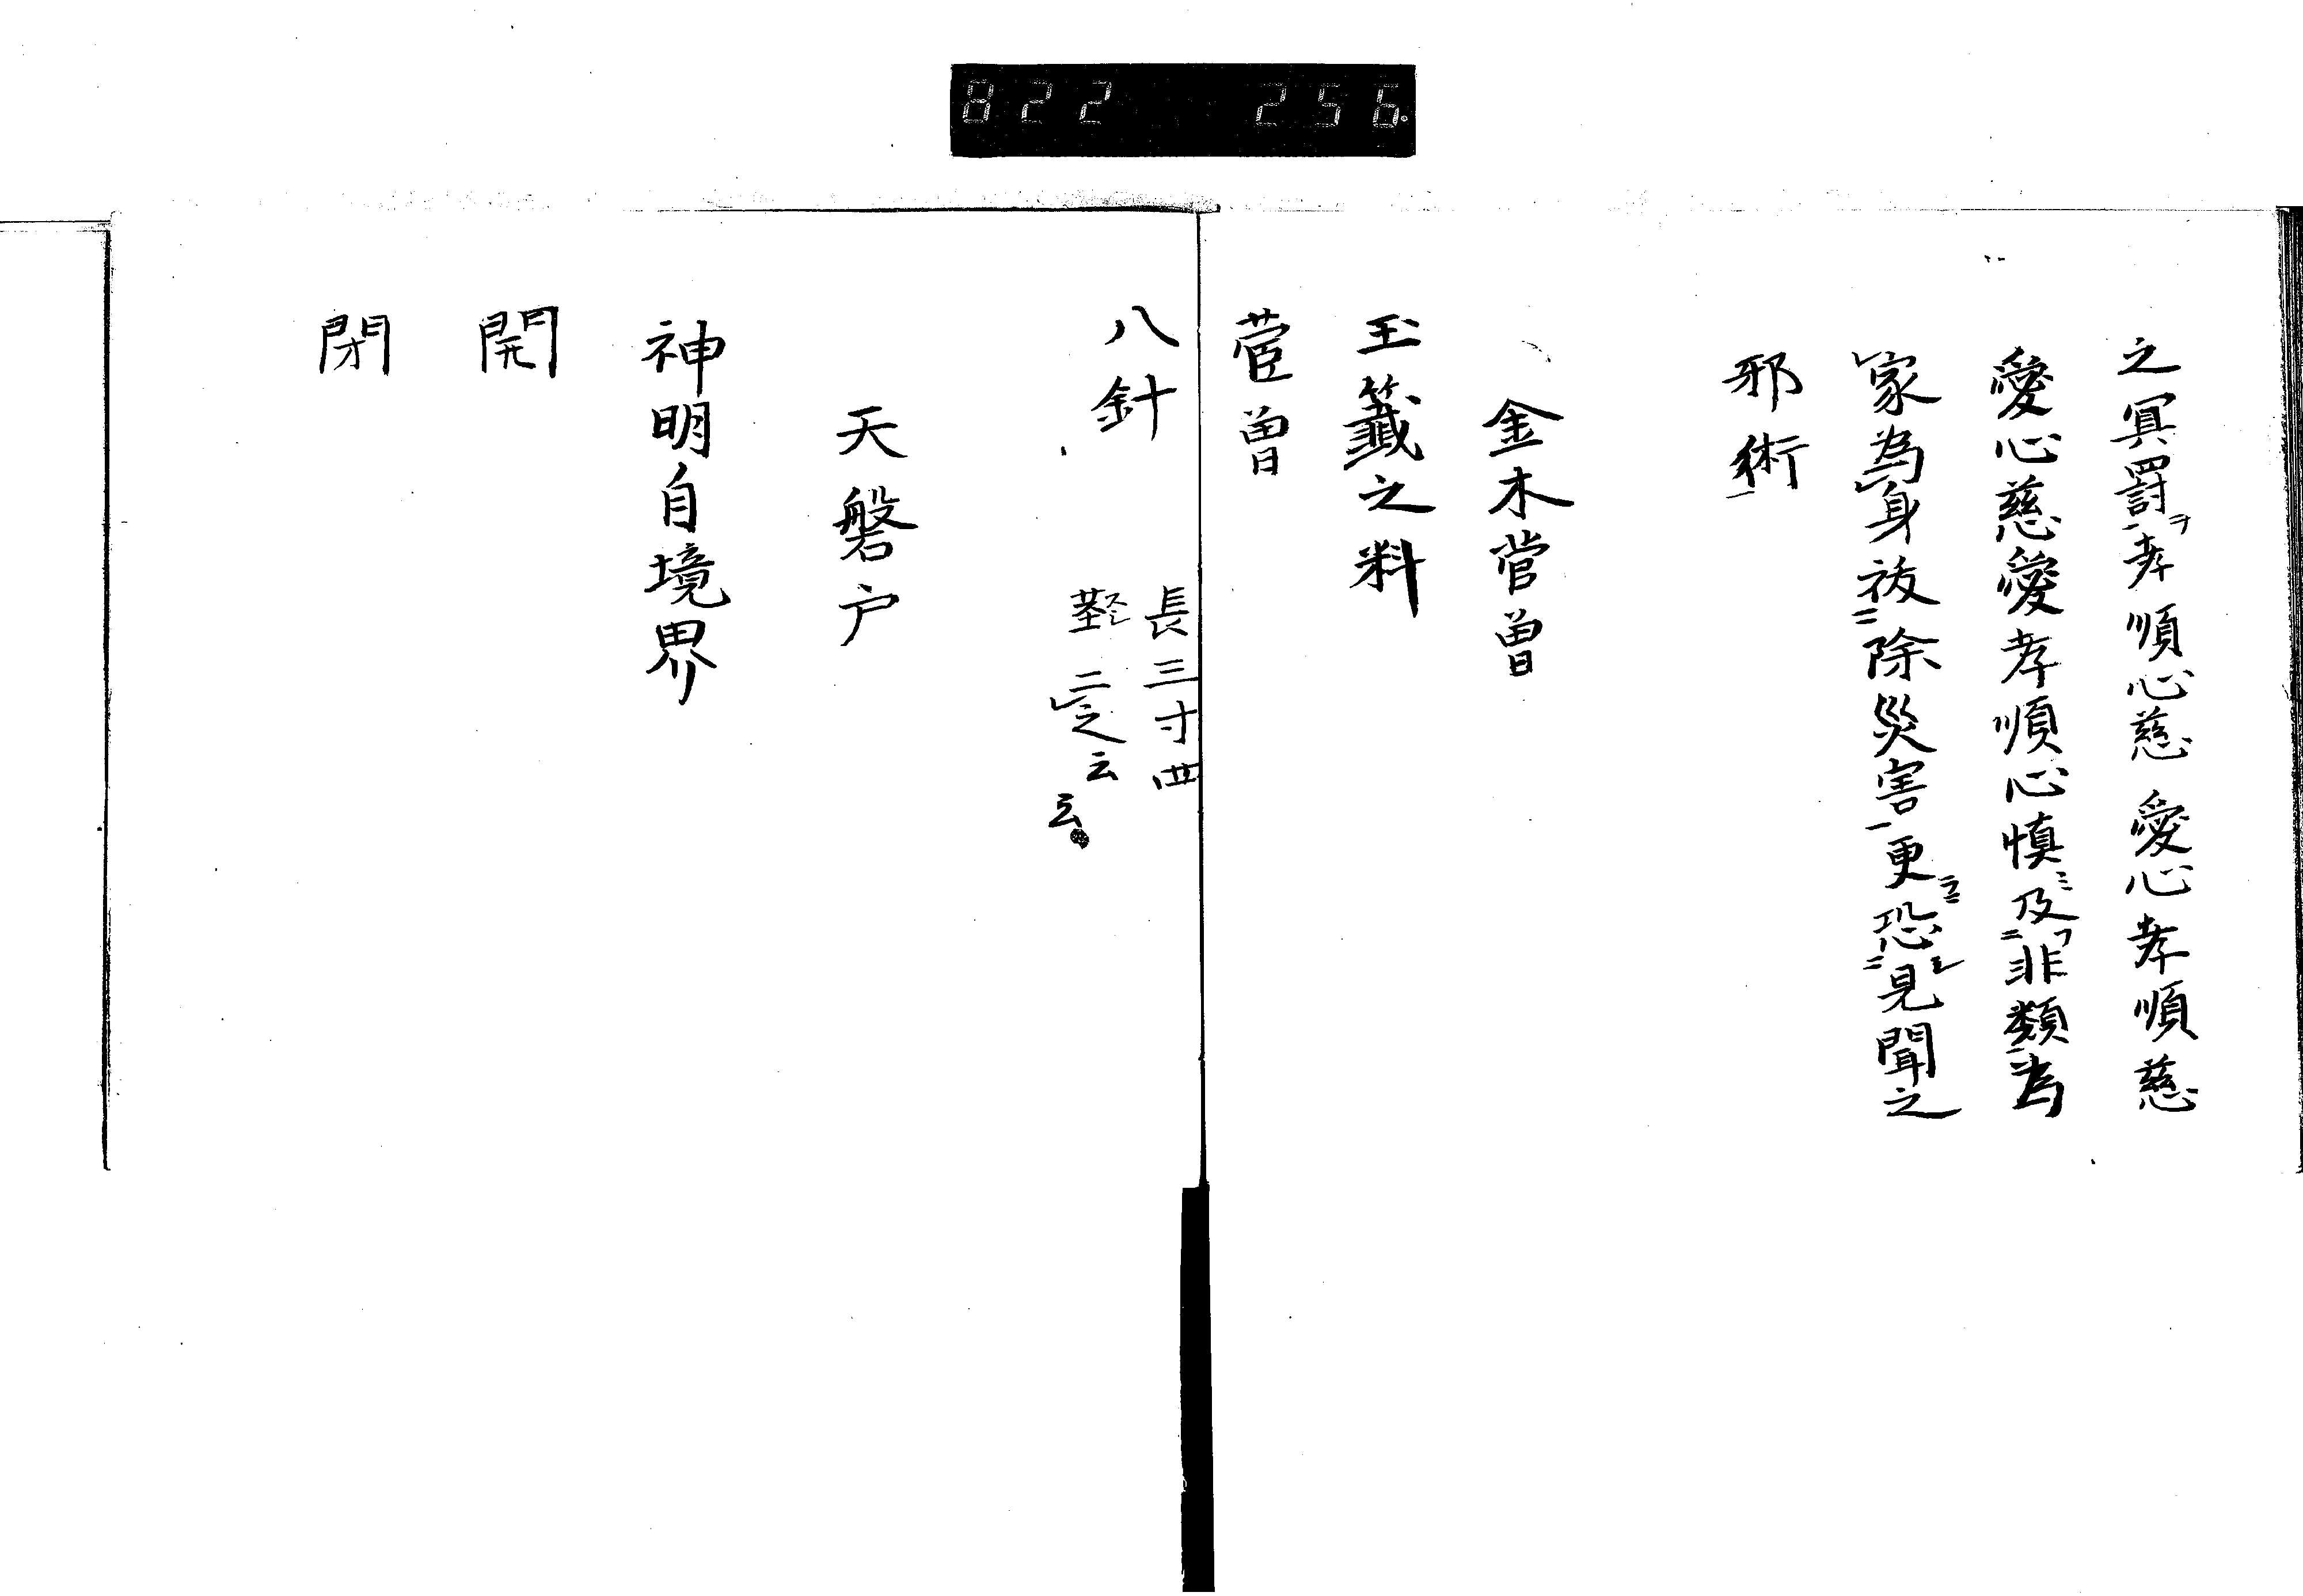 822 256.
之冥罰ヲ一孝順心慈愛心孝順慈
愛心慈愛孝順心慎ミ二及フ非類一為
レ家為レ身祓二除災害一更ニ三恐シ二見聞之
邪術一
金木菅曽
玉籤之料
菅曽
八針
長三寸四
云云
天磐戸
神明自境界
開
閉